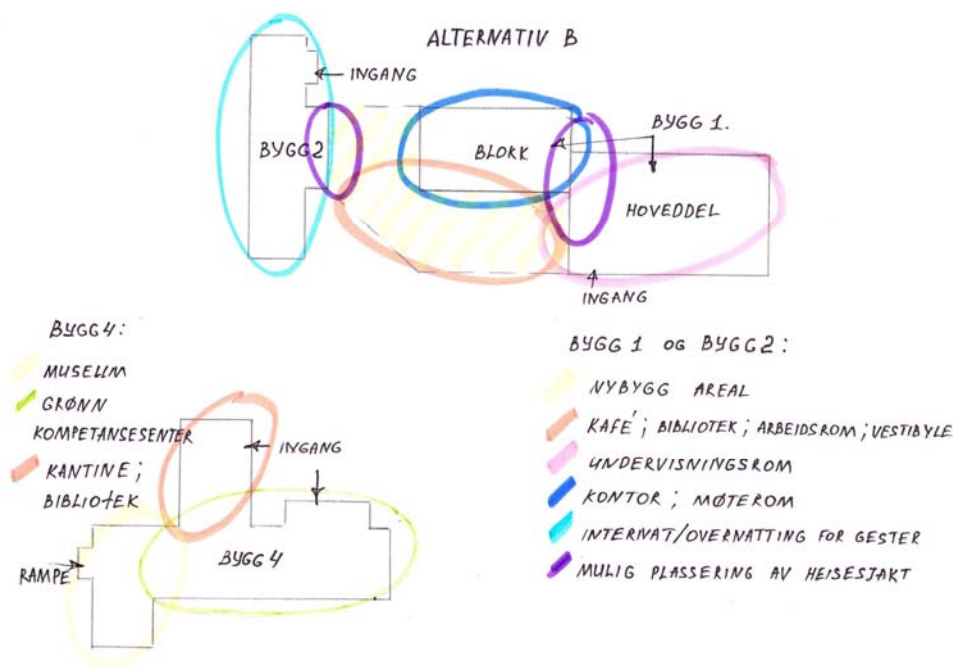 ALTERNATIV B
INGANG
BYGG 1.
BYGG2
BLOKK
HOVEDDEL
INGANG
BYGG4:
MUSEUM
GRØNN
KOMPETANSESENTER
KANTINE;
BIBLIOTEK
INGANG
RAMPE
BYGG 4
BYGG 1 OG BYGG2:
NYBYGG AREAL
KAFÉ; BIBLIOTEK; ARBEIDSROM; VESTIBYLE
UNDERVISNINGSROM
KONTOR; MØTEROM
INTERNAT/OVERNATTING FOR GESTER
MULIG PLASSERING AV HEISESJAKT